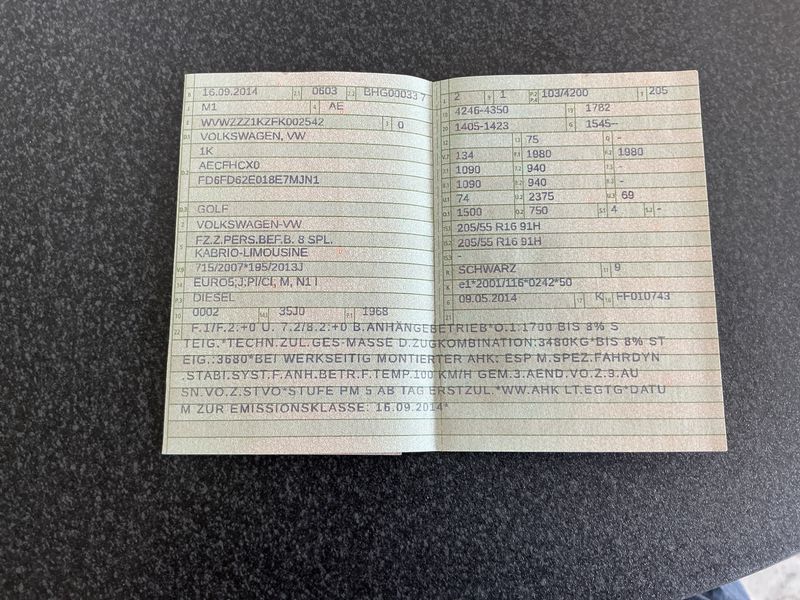 16.09.2014 0603 BHG00033 7
M1 AE
WVWZZZ1KZFK002542 0
VOLKSWAGEN, VW
1K
AECFHCX0
FD6FD62E018E7MJN1
GOLF
VOLKSWAGEN-VW
FZ.Z.PERS.BEF.B. 8 SPL.
KABRIO-LIMOUSINE
715/2007*195/2013J
EURO5;J:PI/CI, M, N1 I
DIESEL
0002 35J0 1968
2 1 103/4200 205
4246-4350 1782
1405-1423 1545--
75 -
134 1980 1980
1090 940 -
1090 940 -
74 2375 69
1500 750 4 -
205/55 R16 91H
205/55 R16 91H
-
SCHWARZ 9
e1*2001/116*0242*50
09.05.2014 K FF010743
F.1/F.2:+0 U. 7.2/8.2:+0 B.ANHÄNGEBETRIEB*O.1:1700 BIS 8% S
TEIG.*TECHN.ZUL.GES-MASSE D.ZUGKOMBINATION:3480KG*BIS 8% ST
EIG.:3680*BEI WERKSEITIG MONTIERTER AHK: ESP M.SPEZ.FAHRDYN
.STABI.SYST.F.ANH.BETR.F.TEMP.100 KM/H GEM.3.AEND.VO.Z.9.AU
SN.VO.Z.STVO*STUFE PM 5 AB TAG ERSTZUL.*WW.AHK LT.EGTG*DATU
M ZUR EMISSIONSKLASSE: 16.09.2014*